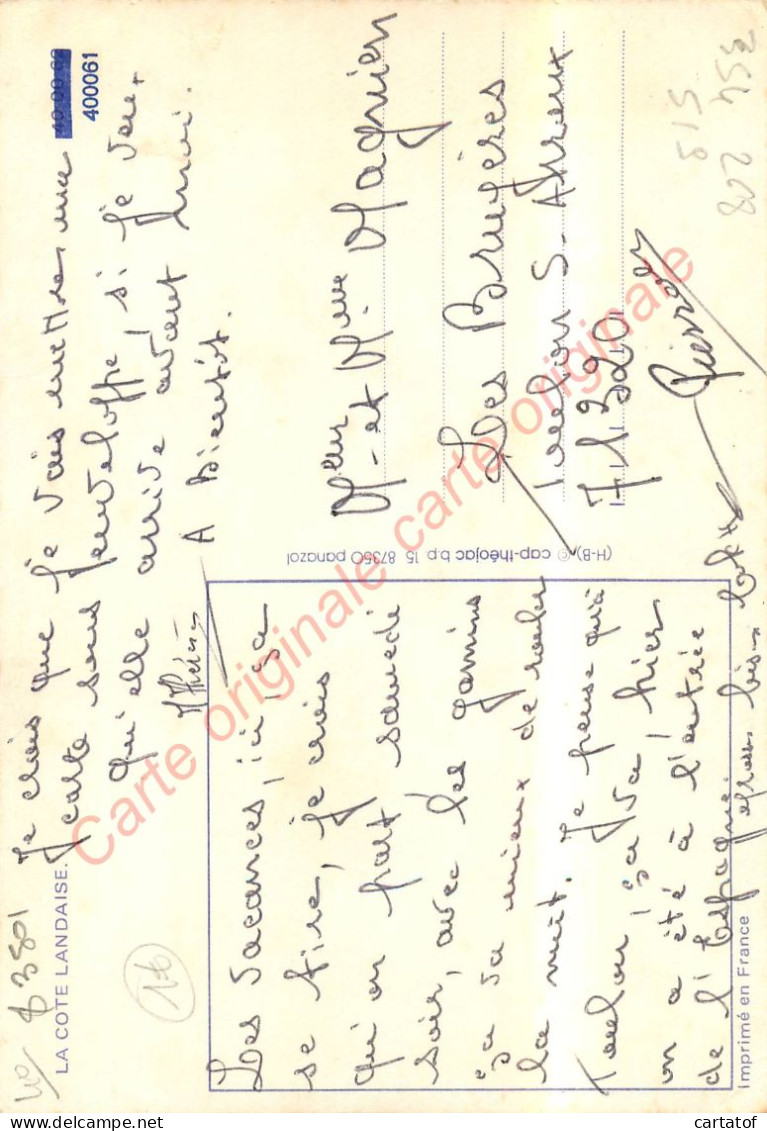 LA COTE LANDAISE.
400061
Je crois que je vais mettre ma
carte sous l'enveloppe, si je veux
qu'elle arrive avant moi.
A Bientôt.
Les Vacances, ici, ça
se tire, je crois
qu'on part samedi
soir, avec les gamins
ça va mieux de rouler
la nuit. Je pense qu'à
Toulon, ça va, hier
on a été à l'entrée
de l'Espagne.
Imprimé en France
(H-B) © cap-théojac b.p. 15 87350 panazol
Mr et Mme Magnien
Les Bruyères
Toulon S. Arroux
71320
Carte originale carte originale
cartatof